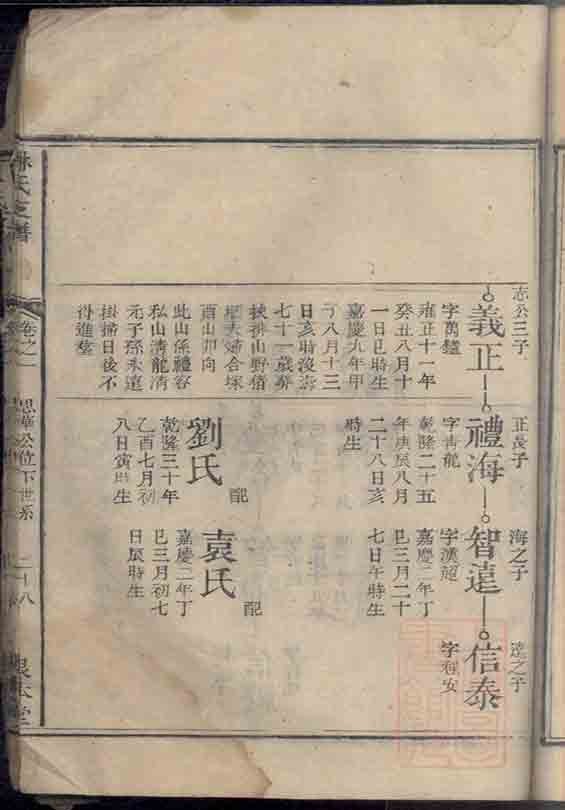 志公三子
義正
字萬鑑
雍正十一年
癸丑八月十
一日巳時生
嘉慶九年甲
子八月十三
日亥時沒壽
七十一歲葬
夫婦合塚
酉山卯向
此山係禮容
私山清龍清
元子孫永遠
掛掃日後不
得進塟
正長子
禮海
字青龍
乾隆二十五
年庚辰八月
二十八日亥
時生
配
劉氏
乾隆三十年
乙酉七月初
八日寅時生
海之子
智遠
字漢超
嘉慶二年丁
巳三月二十
七日午時生
配
袁氏
嘉慶二年丁
巳三月初七
日辰時生
遠之子
信泰
字程安
氏支譜
卷之一
思華公位下世系
二十八